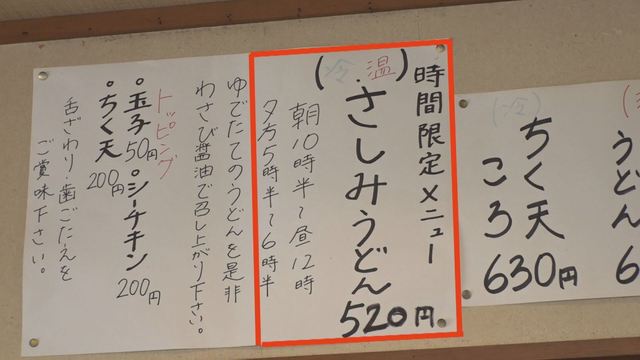 時間限定メニュー
(冷・温)
さしみうどん
520円
朝10時半~昼12時
夕方5時半~6時半
ゆでたてのうどんを是非
わさび醤油で召し上がり下さい。
トッピング
○玉子50円 ○シーチキン200円
○ちく天200円
舌ざわり・歯ごたえを
ご賞味下さい。
うどん
6
(冷)
ちく天
ころ
630円